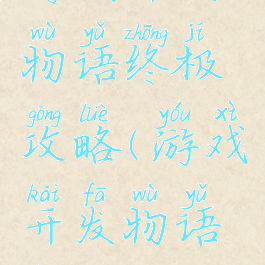 wù yǔ zhōng jí
物语终极
gōng lüè yóu xì
攻略(游戏
kāi fā wù yǔ
开发物语